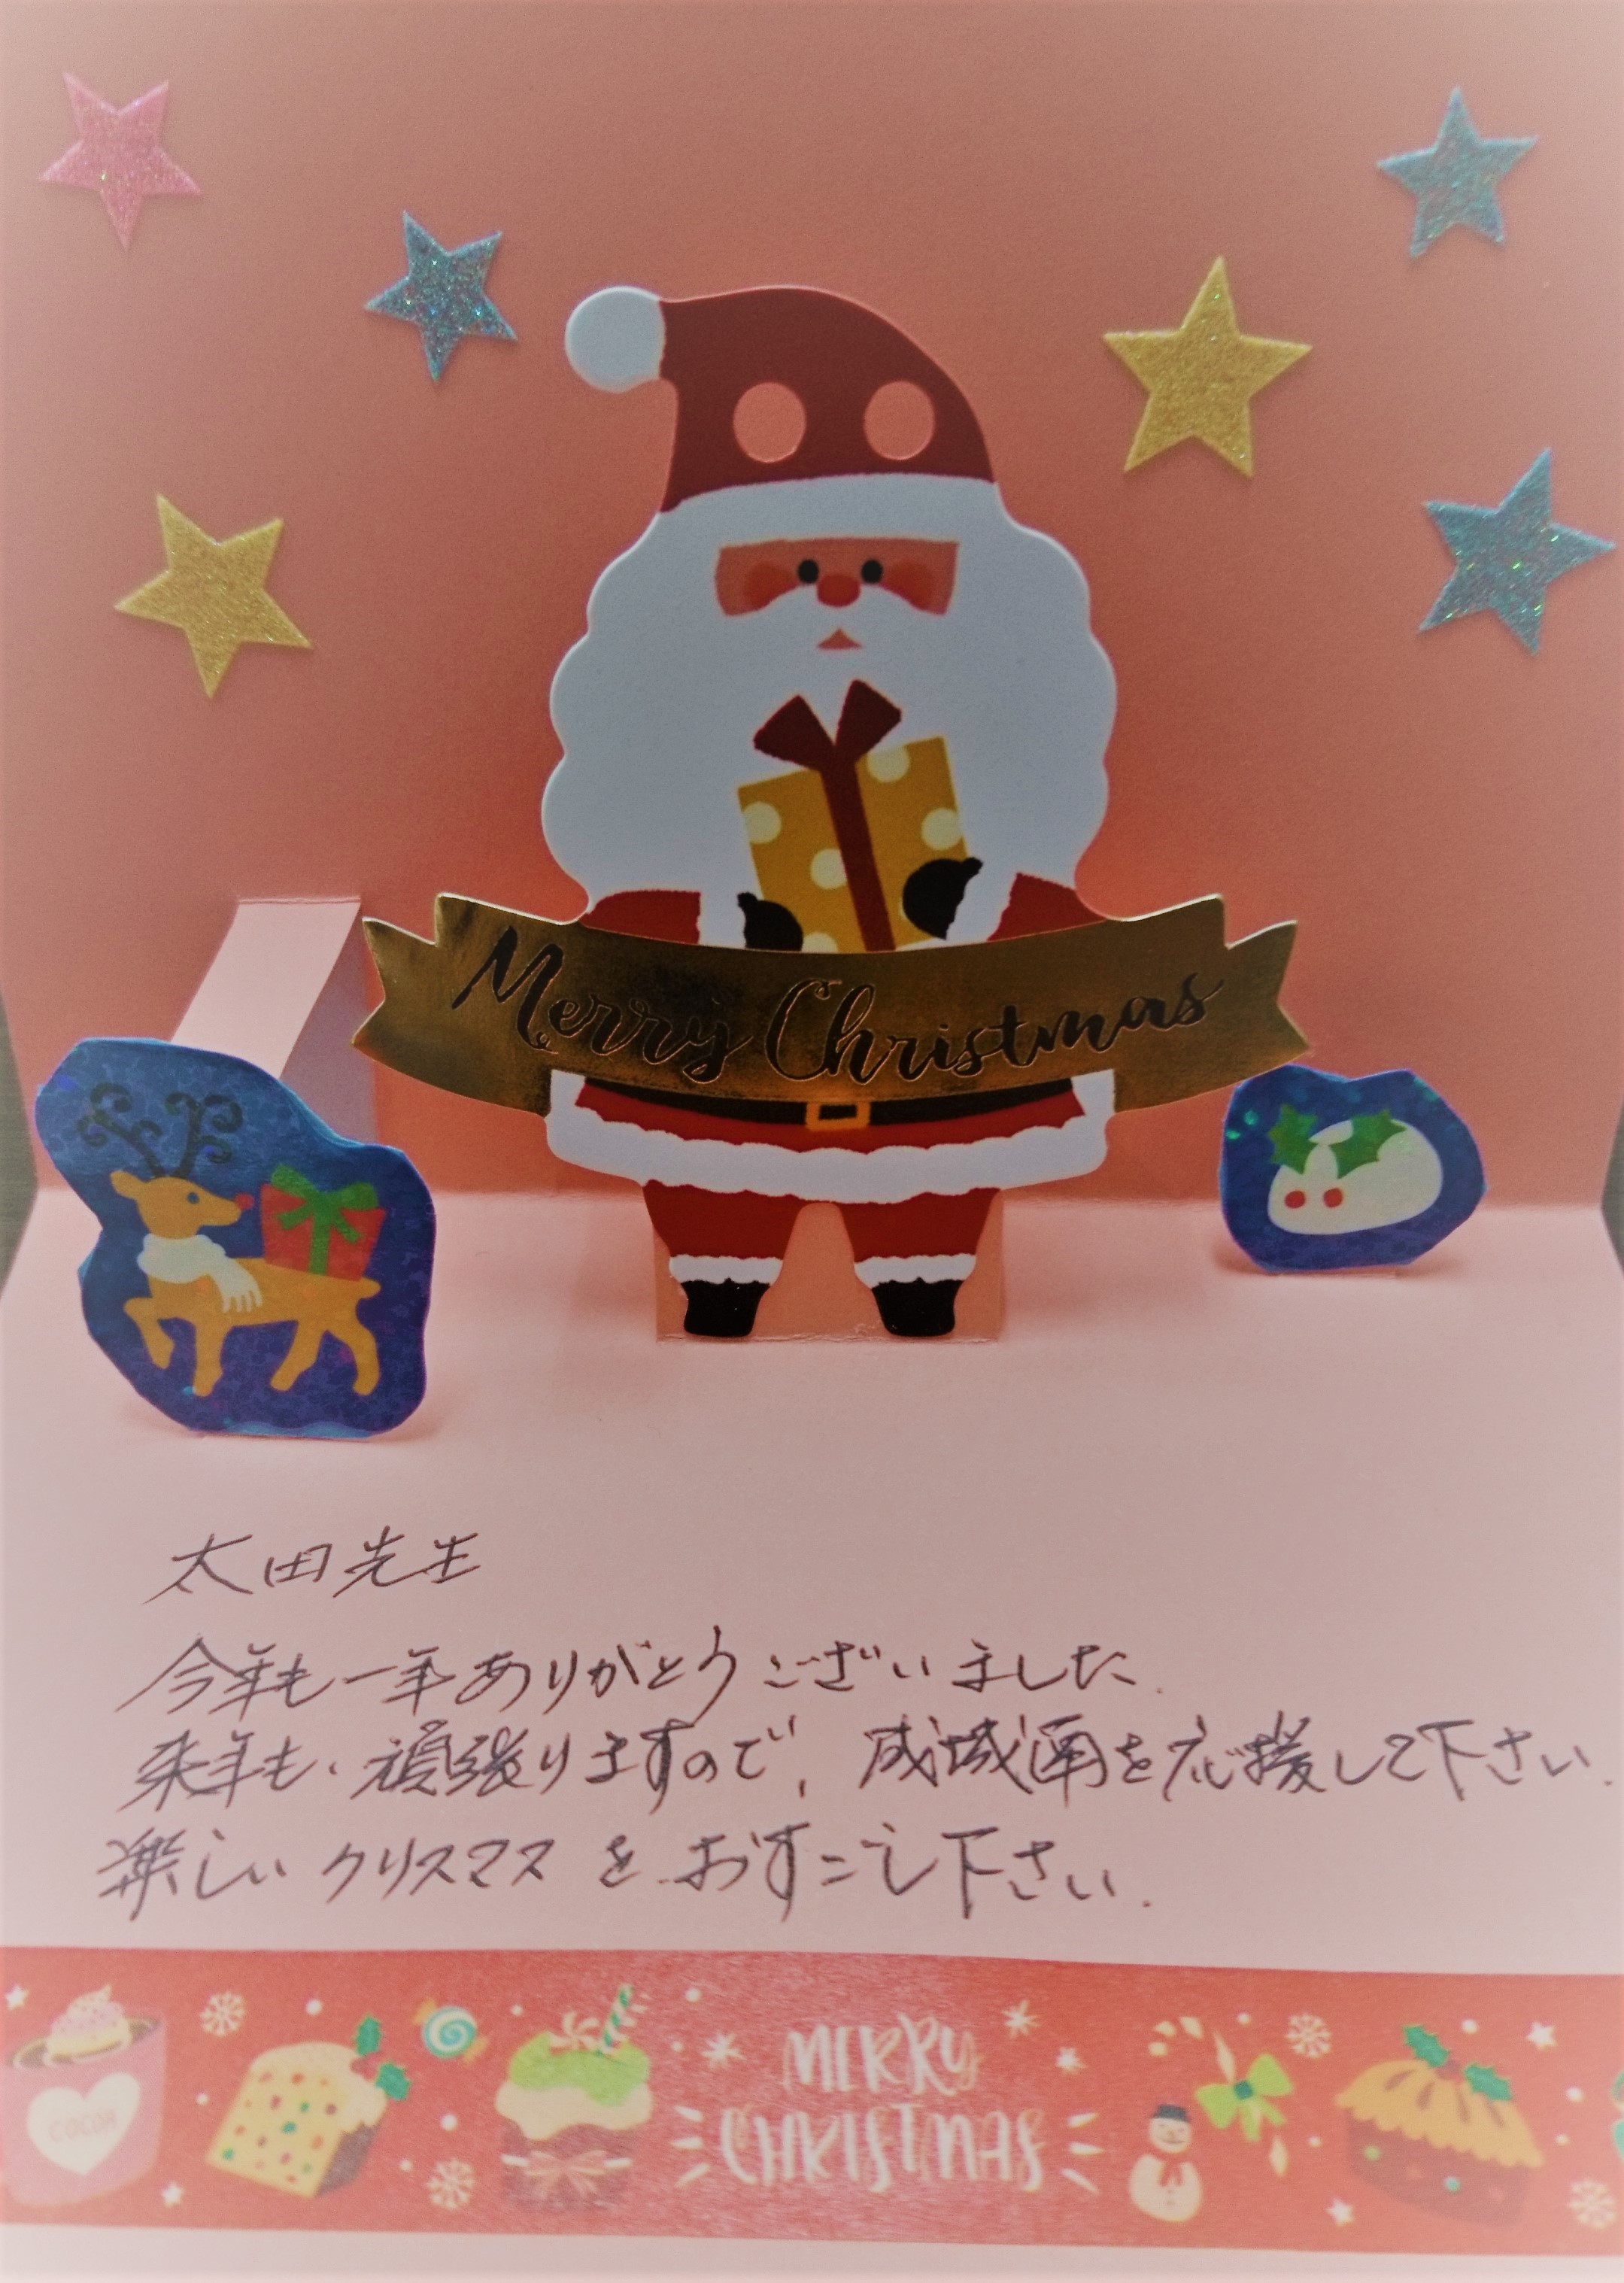 Merry Christmas
太田先生
今年も一年ありがとうございました.
来年も、頑張りますので、成城通を応援して下さい.
楽しいクリスマスをおすごし下さい.
COCOA
MERRY
CHRISTMAS